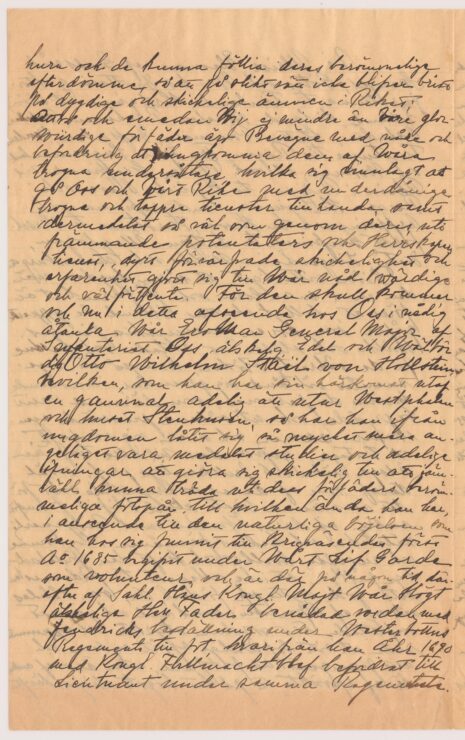 huru och de kunna föllia deras berömmelige
efterdömme, så att på slikt sätt icke blifver brist
på dygdige och skickelige ämnen i Riket;
och emedan Wij ej mindre än våre glor-
wördige förfäder äro Bevägne med nåde och
befordring ihugkomma dem af Wåra
trogna undersåtare hvilka sig vinnlagt att
gå Oss och Vårt Rike med underdånige
trogne och tappre tienster tillhanda, samt
dermedelst så väl som genom deras uti
främmande potentaters och Herrskapers
tienst, dyrt förvärfvade skickelighet och
erfarenhet giort sig till Wår nåd wördige
och väl förtiente. För den skull kommer
och nu i detta afseende hos Oss i nådig
åtanka Wår General Major af
Infanteriet Oss älskelig Edel och
Otto Wilhelm Staël von Hollstein
hvilken, som han har sin härkomst utaf
en gammal adelig ätt utur Westphalen
och huset Steinhusen, så har han ifrån
ungdomen låtit sig så mycket mera an-
gelägit vara medelst studier och adelige
öfningar att giöra sig skickelig till att jäm-
väl kunna träda uti dess förfäders beröm-
meliga fotspår till hvilken ända han har,
i anseende till den naturliga böjelsen som
han hos sig funnit till Krigsväsendet först
A:o 1685 begifvit under Wårt Lif Garde
som volunteur, och är där på någon tid där-
efter af Sahl. Hans Kongl. Majt Wår Högt
älskelige Herr Fader benådad worden med
Fendricks beställning under Westerbottns
Regemente till fot, hvarifrån han Åhr 1690
med Kongl. Fullmacht blef befordrat till
Lieutnant under samma Regemente.